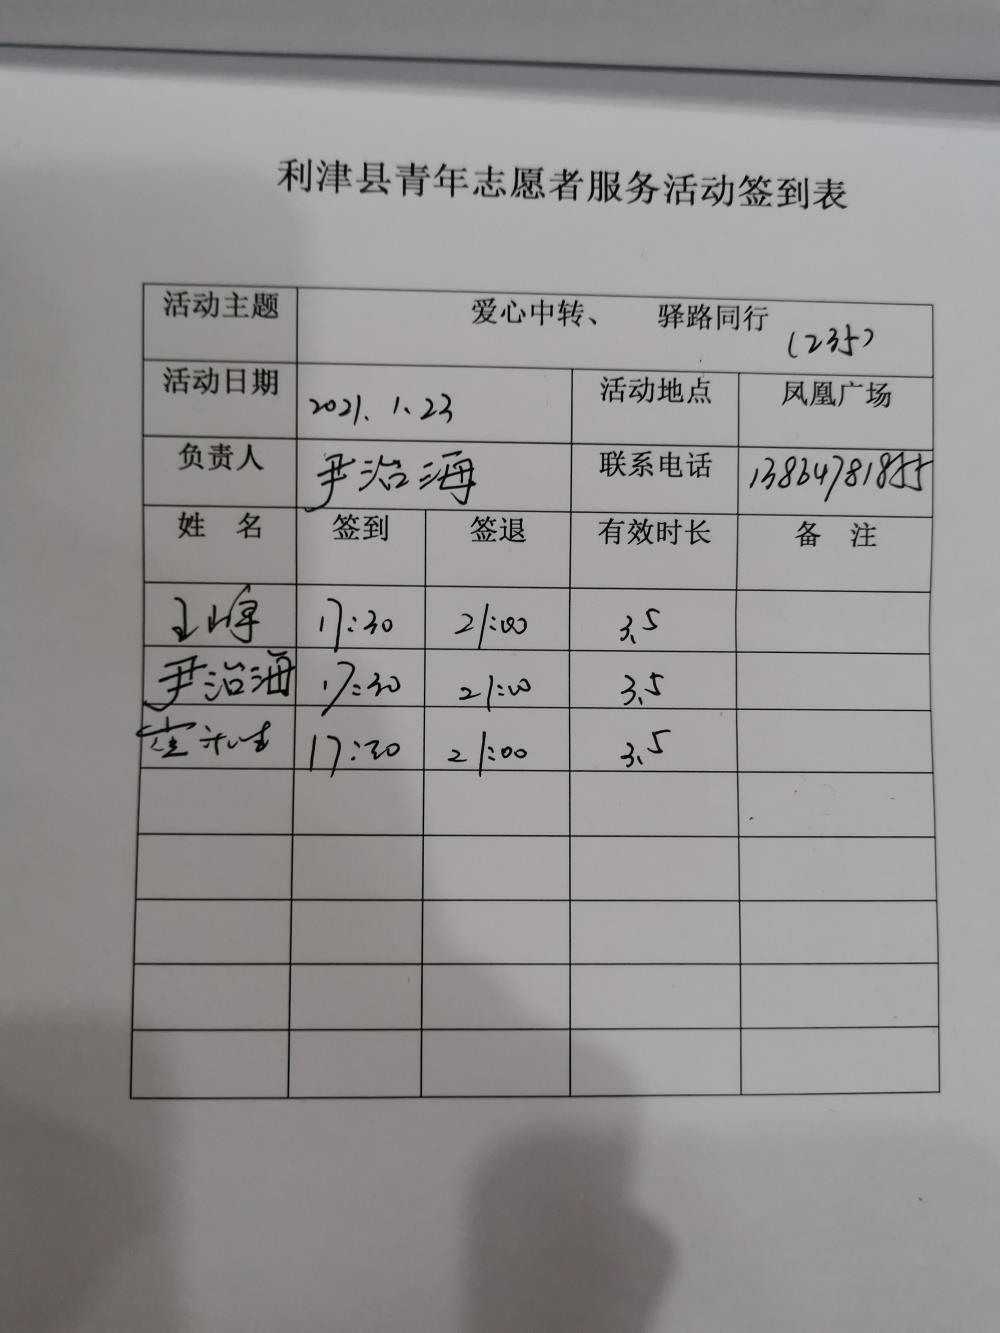 利津县青年志愿者服务活动签到表
活动主题 爱心中转、 驿路同行 (235)
活动日期 2021.1.23 活动地点 凤凰广场
负责人 尹治海 联系电话 13864781855
姓 名 签到 签退 有效时长 备 注
王峰 17:30 21:00 3.5
尹治海 17:30 21:00 3.5
17:30 21:00 3.5